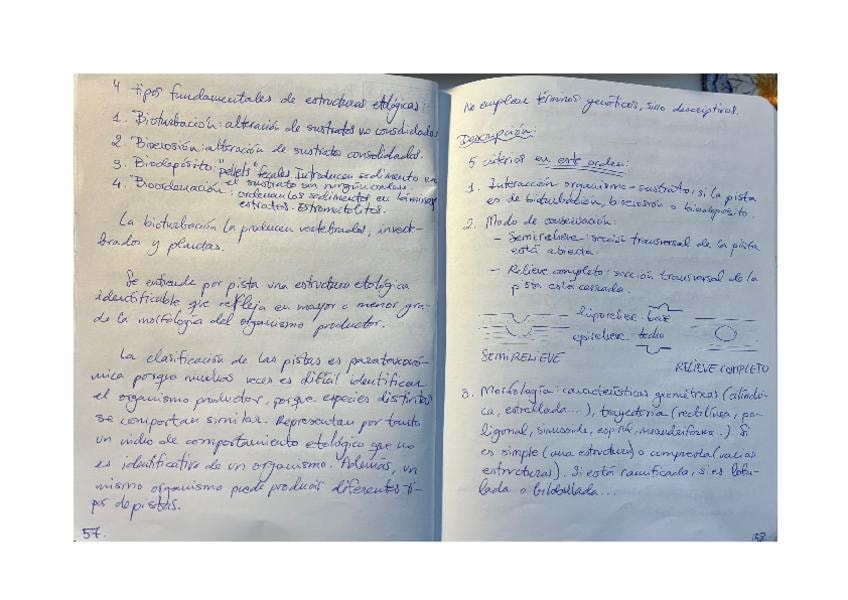 4 tipos fundamentales de estructuras etológicas:
1. Bioturbación: alteración de sustratos no consolidados
2. Bioerosión: alteración de sustratos consolidados.
3. Biodepósito: "pellets" fecales. Introducen sedimento en
el sustrato sin ningún orden.
4. Bioordenación: ordenan los sedimentos en láminas,
estratos. Estromatolitos.
La bioturbación la producen vertebrados, inverte-
brados y plantas.
Se entiende por pista una estructura etológica
identificable que refleja en mayor o menor gra-
do la morfología del organismo productor.
La clasificación de las pistas es parataxonó-
mica porque muchas veces es difícil identificar
el organismo productor, porque especies distintas
se comportan similar. Representan por tanto
un indicio de comportamiento etológico que no
es identificativo de un organismo. Además, un
mismo organismo puede producir diferentes ti-
pos de pistas.
57.
No emplear términos genéticos, sino descriptivos.
Descripción:
5 criterios en este orden:
1. Interacción organismo-sustrato: si la pista
es de bioturbación, bioerosión o biodepósito.
2. Modo de conservación:
- Semirrelieve: sección transversal de la pista
está abierta.
- Relieve completo: sección transversal de la
pista está cerrada.
hiporelieve base
epirelieve techo
SEMIRELIEVE
RELIEVE COMPLETO
3. Morfología: características geométricas (cilíndri-
ca, estrellada...), trayectoria (rectilínea, po-
ligonal, sinusoide, espiral, meandriforme...). Si
es simple (una estructura) o compuesta (varias
estructuras). Si está ramificada, si es lobu-
lada o bilobulada...
58